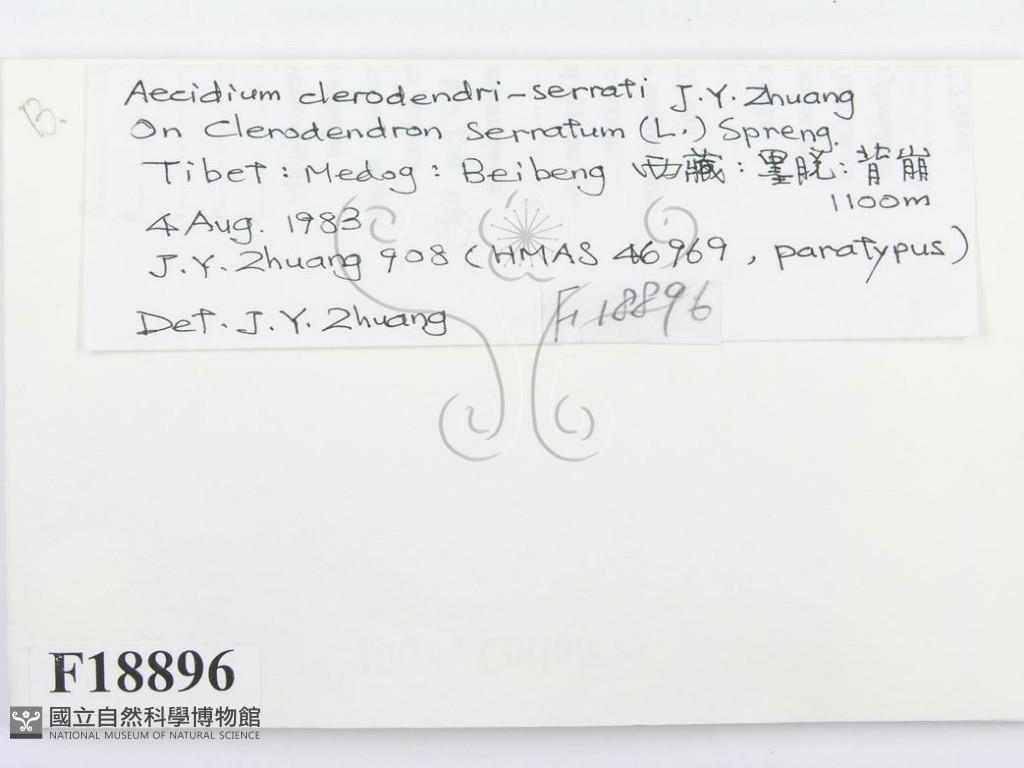 B.
Aecidium clerodendri-serrati J.Y. Zhuang
On Clerodendron serratum (L.) Spreng.
Tibet: Medog: Beibeng 西藏:墨脱:背崩
1100m
4 Aug. 1983
J.Y. Zhuang 908 (HMAS 46969, paratypus)
Det. J.Y. Zhuang
F18896
F18896
國立自然科學博物館
NATIONAL MUSEUM OF NATURAL SCIENCE